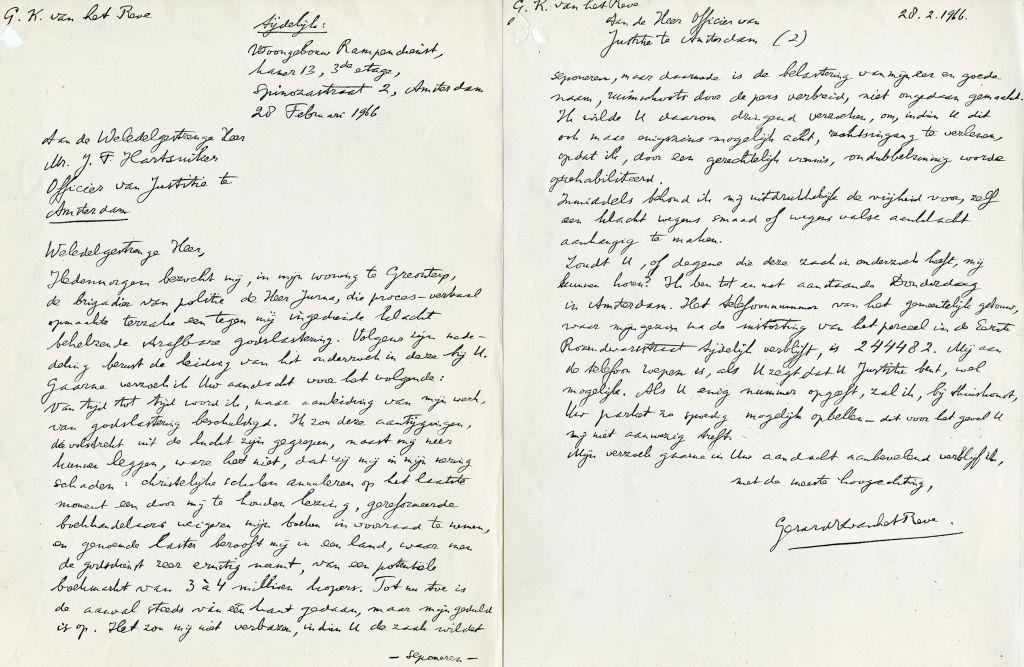 G. K. van het Reve
Tijdelijk:
Woongebouw Rampendienst,
kamer 13, 3de etage,
Spinozastraat 2, Amsterdam
28 Februari 1966
Aan de Weledelgestrenge Heer
Mr. J. F. Hartsuiker
Officier van Justitie te
Amsterdam
Weledelgestrenge Heer,
Hedenmorgen bezocht mij, in mijn woning te Greonterp,
de brigadier van politie de Heer Jurna, die proces-verbaal
opmaakte terzake een tegen mij ingediende klacht
behelzende strafbare godslastering. Volgens zijn mede-
deling berust de leiding van het onderzoek in deze bij U.
Gaarne verzoek ik Uw aandacht voor het volgende:
Van tijd tot tijd word ik, naar aanleiding van mijn werk,
van godslastering beschuldigd. Ik zou deze aantijgingen,
die volstrekt uit de lucht zijn gegrepen, naast mij neer
kunnen leggen, ware het niet, dat zij mij in mijn nering
schaden: christelijke scholen annuleren op het laatste
moment een door mij te houden lezing, gereformeerde
boekhandelaars weigeren mijn boeken in voorraad te nemen,
en genoemde laster berooft mij in een land, waar men
de godsdienst zeer ernstig neemt, van een potentiele
boekmarkt van 3 à 4 millioen kopers. Tot nu toe is
de aanval steeds van één kant gedaan, maar mijn geduld
is op. Het zou mij niet verbazen, indien U de zaak wildet
— seponeren —
G. K. van het Reve
28.2.1966.
Aan de Heer Officier van
Justitie te Amsterdam (2)
seponeren, maar daarmede is de belastering van mijn eer en goede
naam, ruimschoots door de pers verbreid, niet ongedaan gemaakt.
Ik wilde U daarom dringend verzoeken, om, indien U dit
ook maar enigszins mogelijk acht, rechtsingang te verlenen,
opdat ik, door een gerechtelijk vonnis, ondubbelzinnig worde
gerehabiliteerd.
Inmiddels behoud ik mij uitdrukkelijk de vrijheid voor, zelf
een klacht wegens smaad of wegens valse aanklacht
aanhangig te maken.
Zoudt U, of degene die deze zaak in onderzoek heeft, mij
kunnen horen? Ik ben tot en met aanstaande Donderdag
in Amsterdam. Het telefoonnummer van het gemeentelijk gebouw,
waar mijn gezin na de instorting van het perceel in de Eerste
Rozendwarsstraat tijdelijk verblijft, is 244482. Mij aan
de telefoon roepen is, als U zegt dat U Justitie bent, wel
mogelijk. Als U enig nummer opgeeft, zal ik, bij thuiskomst,
Uw parket zo spoedig mogelijk opbellen — dit voor het geval U
mij niet aanwezig treft.
Mijn verzoek gaarne in Uw aandacht aanbevelend verblijf ik,
met de meeste hoogachting,
Gerard K van het Reve.